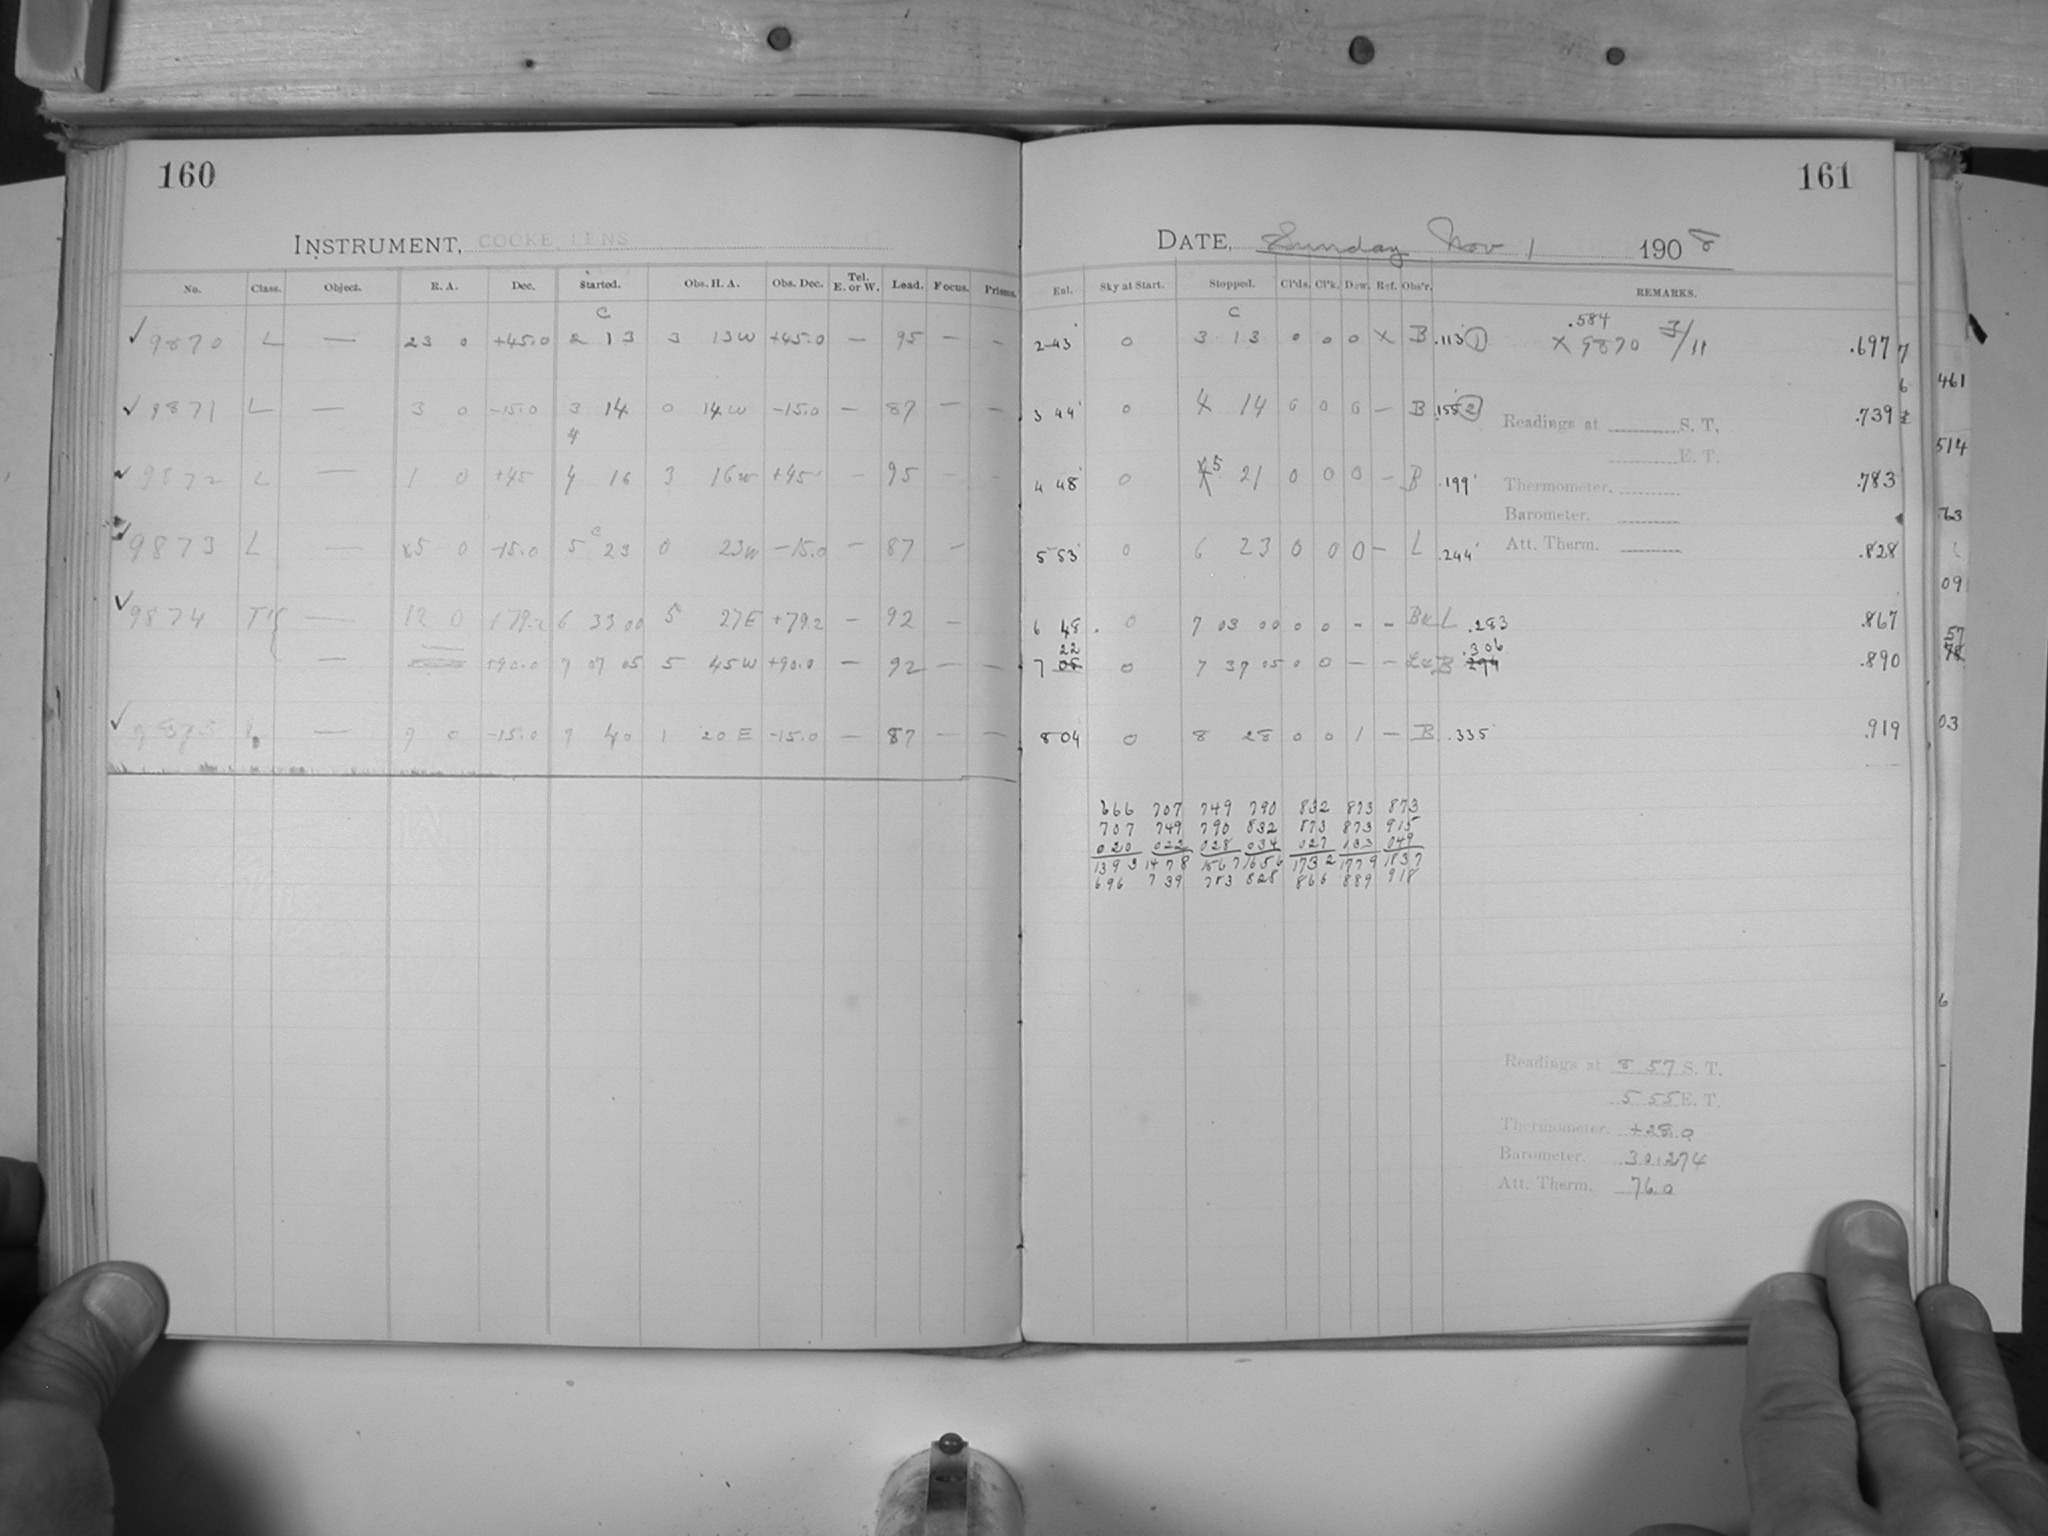 160
INSTRUMENT, COOKE LENS
No. Class. Object. R. A. Dec. Started. Obs. H. A. Obs. Dec. Tel. E. or W. Lead. Focus. Prisms.
C
✓ 9870 L — 23 0 +45.0 2 13 3 13W +45.0 — 95 — —
✓ 9871 L — 3 0 -15.0 3 14 0 14W -15.0 — 87 — —
4
✓ 9872 L — 1 0 +45 4 16 3 16W +45 — 95 — —
✓ 9873 L — 5 0 -15.0 5 C 23 0 23W -15.0 — 87 —
✓ 9874 — 12 0 +79.2 6 33 00 5 27E +79.2 — 92 —
— +90.0 7 07 05 5 45W +90.0 — 92 — —
✓ 9875 L — 9 0 -15.0 7 40 1 20E -15.0 — 87 — —
161
DATE, Sunday Nov 1 1908
Ent. Sky at Start. Stopped. Cl'ds. Cl'k. Dew. Ref. Obs'r. REMARKS.
C .584
2 43 0 3 13 0 0 0 X B .113 1 X 9870 3/11 .697
3 44 0 4 14 0 0 0 — B .155 2 .739
Readings at S. T.
E. T.
4 48 0 5 21 0 0 0 — B .199 .783
Thermometer.
Barometer.
5 53 0 6 23 0 0 0 — L .244 .828
Att. Therm.
6 48 0 7 03 00 0 0 — — B & L .283 .867
22 .306
7 05 0 7 37 05 0 0 — — L & B 294 .890
8 04 0 8 28 0 0 1 — B .335 .919
666 707 749 790 832 873 873
707 749 790 832 873 873 915
020 022 028 034 027 133 049
1393 1478 1567 1656 1732 1779 1837
696 739 783 828 866 889 918
Readings at 8 57 S. T.
5 55 E. T.
Thermometer. +28.0
Barometer. 30.274
Att. Therm. 76.0
461
514
63
09
57
78
03
6